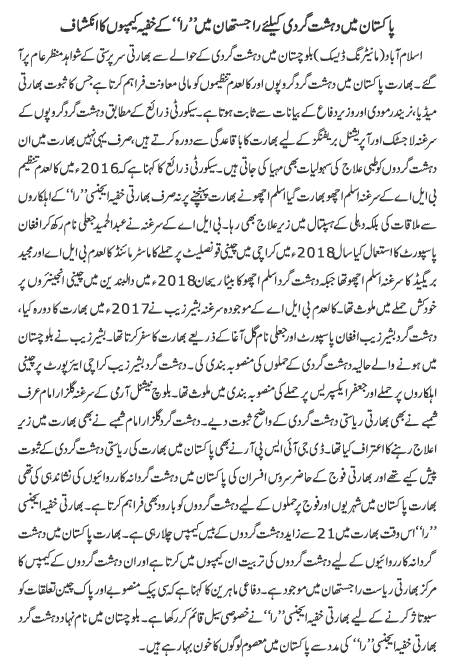 پاکستان میں دہشت گردی کیلئے راجستھان میں ’’را‘‘ کے خفیہ کیمپوں کا انکشاف
اسلام آباد (مانیٹرنگ ڈیسک) بلوچستان میں دہشت گردی کے حوالے سے بھارتی سرپرستی کے شواہد منظر عام پر آ
گئے۔ بھارت پاکستان میں دہشت گرد گروپوں اور کالعدم تنظیموں کو مالی معاونت فراہم کرتا ہے جس کا ثبوت بھارتی
میڈیا، نریندر مودی اور وزیر دفاع کے بیانات سے ثابت ہوتا ہے۔ سیکورٹی ذرائع کے مطابق دہشت گرد گروپوں کے
سرغنہ لاجسٹک اور آپریشنل بریفنگز کے لیے بھارت کا باقاعدگی سے دورہ کرتے ہیں، صرف یہی نہیں بھارت میں ان
دہشت گردوں کو طبی علاج کی سہولیات بھی مہیا کی جاتی ہیں۔ سیکورٹی ذرائع کا کہنا ہے کہ 2016ء میں کالعدم تنظیم
بی ایل اے کے سرغنہ اسلم اچھو بھارت گیا اسلم اچھو نے بھارت پہنچنے پر نہ صرف بھارتی خفیہ ایجنسی ’’را‘‘ کے اہلکاروں
سے ملاقات کی بلکہ دہلی کے ہسپتال میں زیر علاج بھی رہا۔ بی ایل اے کے سرغنہ نے عبدالحمید جعلی نام رکھ کر افغان
پاسپورٹ کا استعمال کیا سال 2018ء میں کراچی میں چینی قونصلیٹ پر حملے کا ماسٹر مائنڈ کالعدم بی ایل اے اور مجید
بریگیڈ کا سرغنہ اسلم اچھو تھا جبکہ دہشت گرد اسلم اچھو کا بیٹا ریحان 2018ء میں دالبندین میں چینی انجینئروں پر
خودکش حملے میں ملوث تھا۔ کالعدم بی ایل اے کے موجودہ سرغنہ بشیر زیب نے 2017ء میں بھارت کا دورہ کیا،
دہشت گرد بشیر زیب افغان پاسپورٹ اور جعلی نام گل آغا کے ذریعے بھارت کا سفر کرتا تھا۔ بشیر زیب نے بلوچستان
میں ہونے والے حالیہ دہشت گردی کے حملوں کی منصوبہ بندی کی۔ دہشت گرد بشیر زیب کراچی ایئرپورٹ پر چینی
اہلکاروں پر حملے اور جعفر ایکسپریس پر حملے کی منصوبہ بندی میں ملوث تھا۔ بلوچ نیشنل آرمی کے سرغنہ گلزار امام عرف
شمبے نے بھی بھارتی ریاستی دہشت گردی کے واضح ثبوت دیے۔ دہشت گرد گلزار امام شمبے نے بھی بھارت میں زیر
علاج رہنے کا اعتراف کیا تھا۔ ڈی جی آئی ایس پی آر نے بھی پاکستان میں بھارت کی ریاستی دہشت گردی کے ثبوت
پیش کیے تھے اور بھارتی فوج کے حاضر سروس افسران کی پاکستان میں دہشت گردانہ کارروائیوں کی نشاندہی کی تھی
بھارت پاکستان میں شہریوں اور فوج پر حملوں کے لیے دہشت گردوں کو بارود بھی فراہم کرتا ہے۔ بھارتی خفیہ ایجنسی
’’را‘‘ اس وقت بھارت میں 21 سے زاید دہشت گردوں کے بیس کیمپس چلا رہی ہے۔ بھارت پاکستان میں دہشت
گردانہ کارروائیوں کے لیے دہشت گردوں کی تربیت ان کیمپوں میں کرتا ہے اور ان دہشت گردوں کے کیمپس کا
مرکز بھارتی ریاست راجستھان میں موجود ہے۔ دفاعی ماہرین کا کہنا ہے کہ سی پیک منصوبے اور پاک چین تعلقات کو
سبوتاژ کرنے کے لیے بھارتی خفیہ ایجنسی ’’را‘‘ نے خصوصی سیل قائم کر رکھا ہے۔ بلوچستان میں نام نہاد دہشت گرد
بھارتی خفیہ ایجنسی ’’را‘‘ کی مدد سے پاکستان میں معصوم لوگوں کا خون بہا رہے ہیں۔